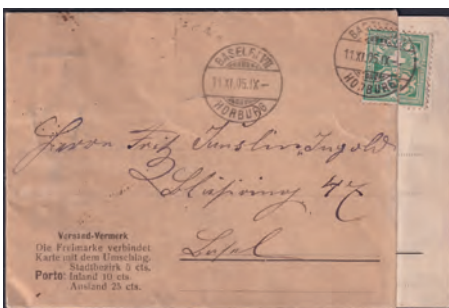 BASEL 2 FIL.
11.XI.05.IX-
HORBURG
BASEL
11.XI.05.IX-
HORBURG
Herrn Fritz
Bläsiring 47
Basel
Versand-Vermerk
Die Freimarke verbindet
Karte mit dem Umschlag.
Stadtbezirk 5 cts.
Porto: Inland 10 cts.
Ausland 25 cts.